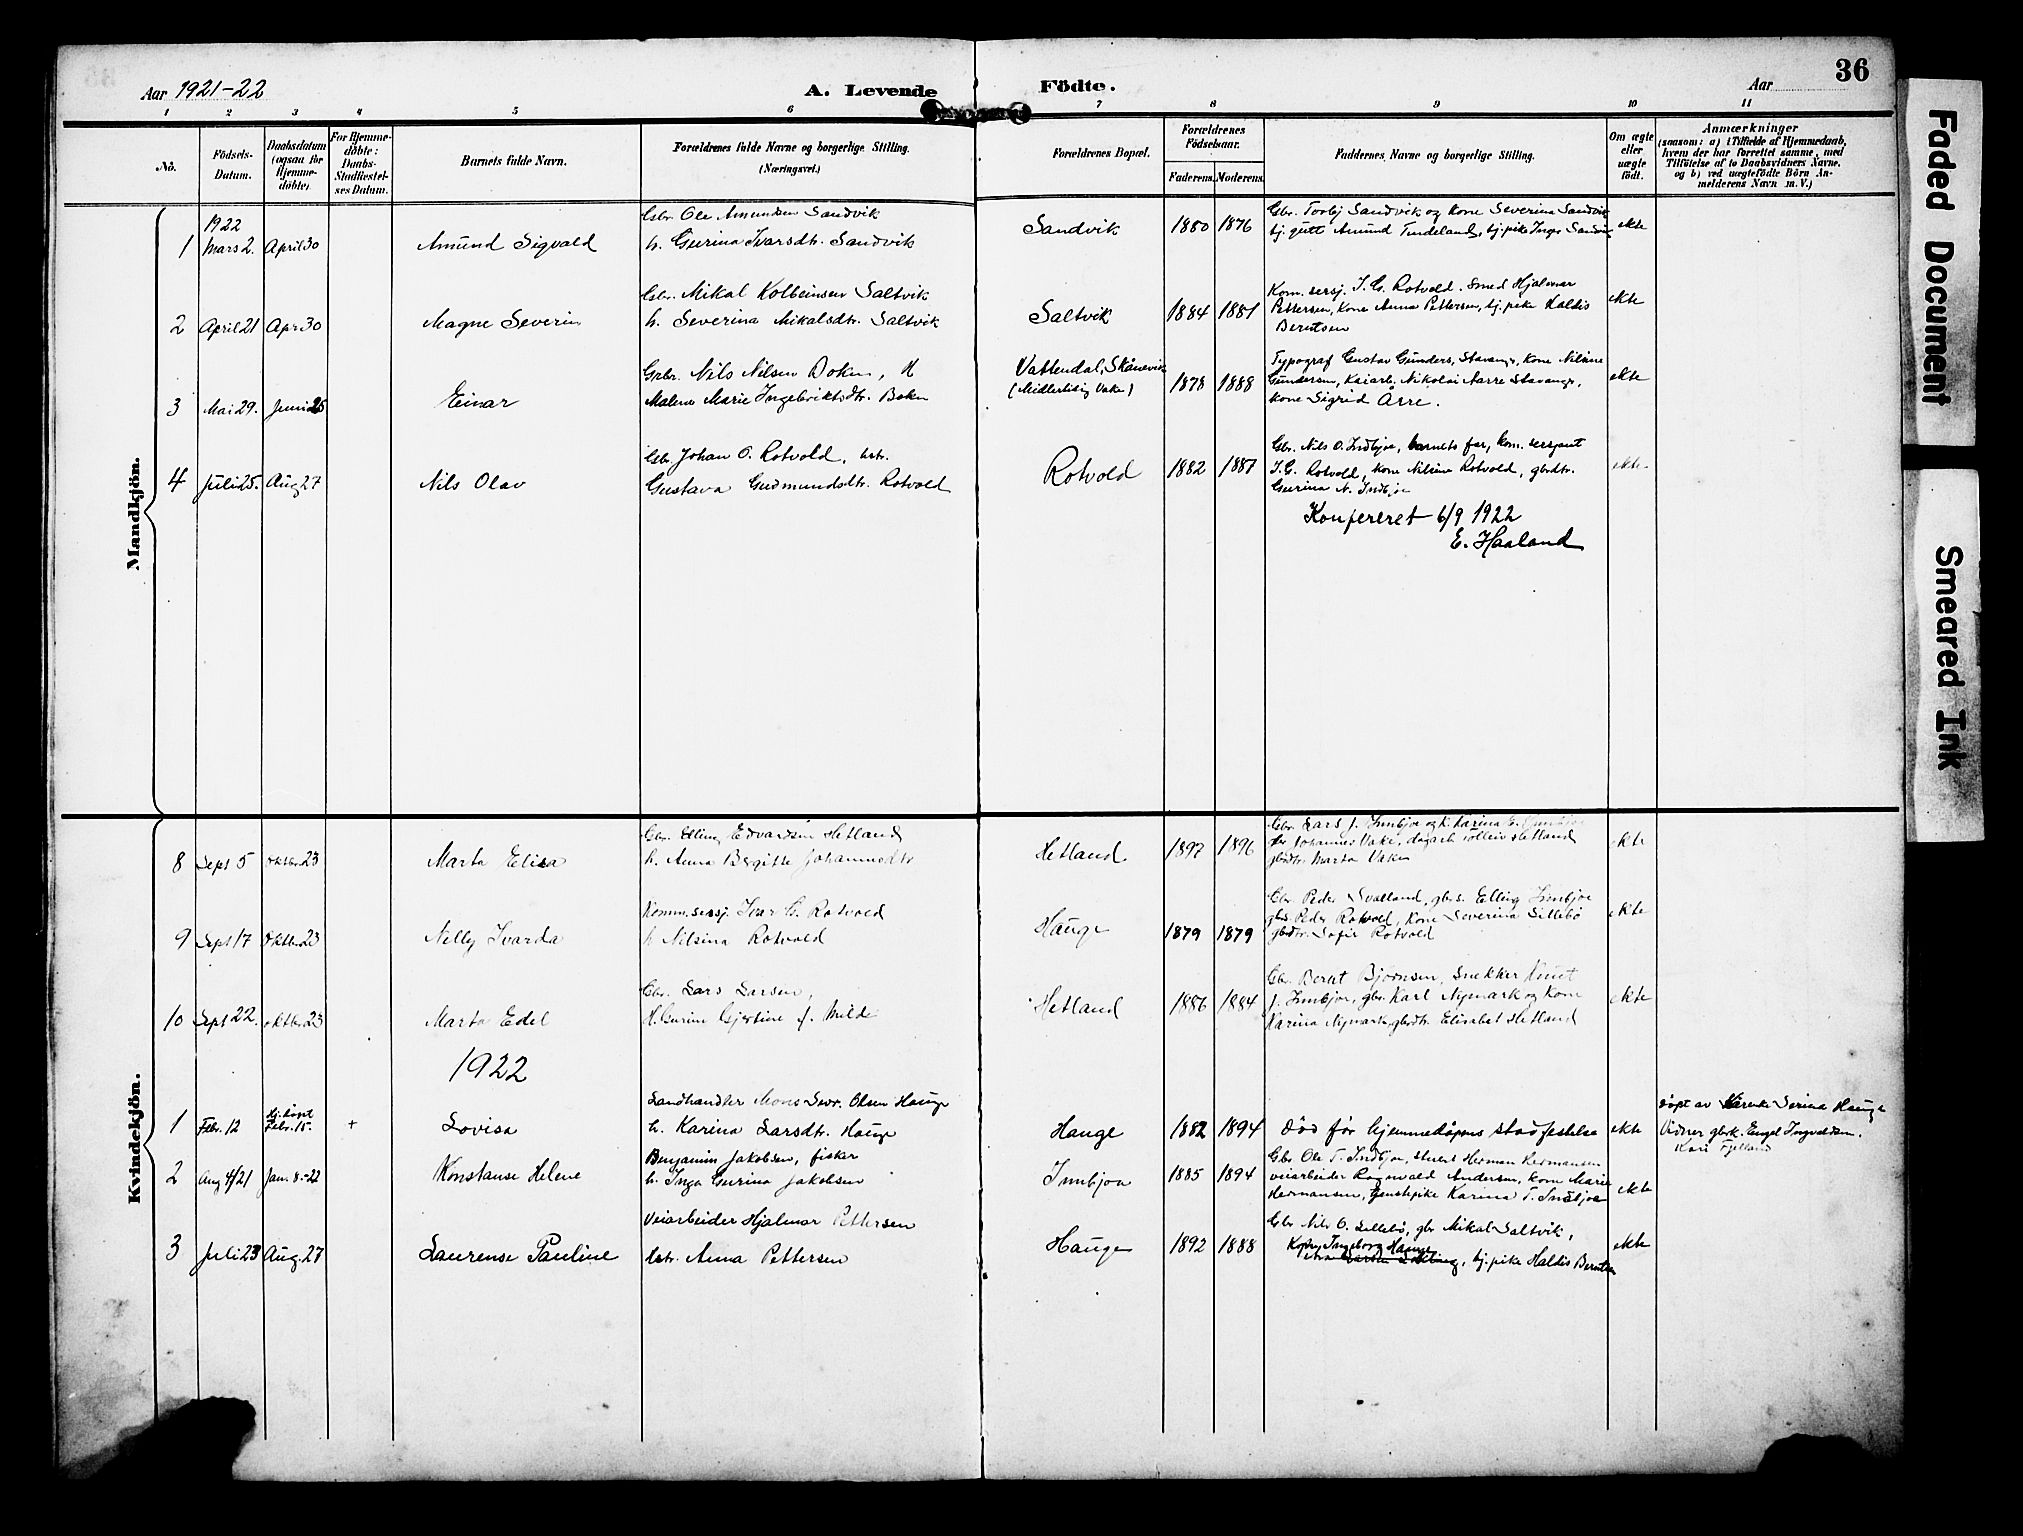 Aar 1921-22
A. Levende Födte.
Aar
36
1 2 3 4 5 6 7 8 9 10 11
No.
Födsels-
Datum.
Daabsdatum
(ogsaa for
Hjemme-
döbte).
For Hjemme-
döbte:
Daabs-
Stadfæstel-
ses Datum.
Barnets fulde Navn.
Forældrenes fulde Navne og borgerlige Stilling.
(Næringsvei.)
Forældrenes Bopæl.
Forældrenes
Födselsaar.
Faderens. Moderens.
Faddernes Navne og borgerlige Stilling.
Om ægte
eller
uægte
födt.
Anmærkninger
(saasom: a) i Tilfælde af Hjemmedaab,
hvem der har forrettet samme, med
Tilföielse af to Daabsvidners Navne,
og b) ved uægtefödte Börn An-
melderens Navn m.V.)
Mandkjön.
1922
1 Mars 2. April 30 Amund Sigvald
Gbr. Ole Amundsen Sandvik
h. Gurina Ivarsdtr. Sandvik
Sandvik 1880 1876
Gbr. Torbj Sandvik og kone Severina Sandvik
tj. gutt Amund Tindeland, tj. pike Inger Sandvik
ekte
2 April 21 Apr 30 Magne Severin
Gbr. Mikal Kolbeinsen Saltvik
h. Severina Mikalsdtr. Saltvik
Saltvik 1884 1881
Kom. sersj. I. G. Rotvold. Smed Hjalmar
Pettersen, kone Anna Pettersen, tj. pike Haldis
Berntsen
ekte
3 Mai 29. Juni 25 Einar
Gbr. Nils Nilsen Boken, H
Malene Marie Ingebriktsdtr. Boken
Vattendal, Skånevik
(Midlertidig Vake)
1878 1888
Typograf Gustav Gunders, Stavang, kone Nilsine
Gundersen, Kaiarb. Nikolai Aarre Stavangr,
kone Sigrid Arre.
ekte
4 Juli 25. Aug 27 Nils Olav
Gbr. Johan O. Rotvold, hstr.
Gustava Gudmundsdtr. Rotvold
Rotvold 1882 1887
Gbr. Nils O. Indbjoe, barnets far, kom. sersjant
I. G. Rotvold, kone Nilsine Rotvold, gbrdtr.
Gurina N. Indbjoe
ekte
Konfereret 6/9 1922
E. Haaland
Kvindekjön.
8 Sept 5 Oktbr 23 Marta Elisa
Gbr. Elling Edvardsen Hetland
h. Anna Birgitte Johannesdtr
Hetland 1897 1896
Gbr. Lars J. Innbjoe og k. Karina
gbr Johannes Vake, dagarb Tolleiv Hetland
gbrdtr. Marta Vake
ekte
9 Sept 17 Oktbr 23 Nelly Ivarda
Komm. sersj. Ivar G. Rotvold
h Nilsina Rotvold
Hauge 1879 1879
Gbr. Peder Svalland, gbrs. Elling Innbjoe
gbs. Peder Rotvold, kone Severina Sillebö
gbrdtr. Sofie Rotvold
ekte
10 Sept 22. oktbr. 23 Marta Edel
Gbr. Lars Larsen,
H. Gurine Gjertine f. Milde
Hetland 1886 1884
Gbr. Bernt Bjørnsen, Snekker Knut
J. Innbjoe, gbr. Karl Nymark og kone
Karina Nymark, gbrdtr. Elisabet Hetland
ekte
1922
1 Febr. 12 Hj. døpt
Febr. 15. + Lovisa
Landhandler Mons Sevr. Olsen Hauge
h. Karina Larsdtr. Hauge
Hauge 1882 1894
Død før hjemmedåpens stadfestelse
ekte
døpt av Karenke Serina Hauge
Vidner gbrk. Engel Ingvaldsen.
Kari Fjelland
2 Aug 4/21 Jan. 8.-22 Konstanse Helene
Benjamin Jakobsen, fisker
h. Inga Gurina Jakobsen
Innbjoa 1885 1894
Gbr. Ole T. Indbjoe, Herman Hermansen
veiarbeider Ragnvald Andersen, kone Marie
Hermansen, tjenstpike Karina T. Innbjoe
ekte
3 Juli 23 Aug. 27 Laurense Pauline
Veiarbeider Hjalmar Pettersen
hstr. Anna Pettersen
Hauge 1892 1888
Gbr Nils O. Sillebö, gbr Mikal Saltvik,
Ingeborg Hauge
tj. pike Haldis Berntsen
ekte
Faded Document
Smeared Ink